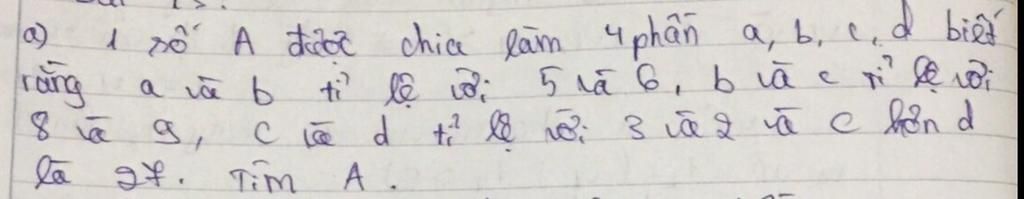 a) 1 số A được chia làm 4 phần a, b, c, d biết
rằng a và b tỉ lệ với 5 và 6, b và c tỉ lệ với
8 và 9, c và d tỉ lệ với 3 và 2 và c hơn d
là 27. Tìm A.